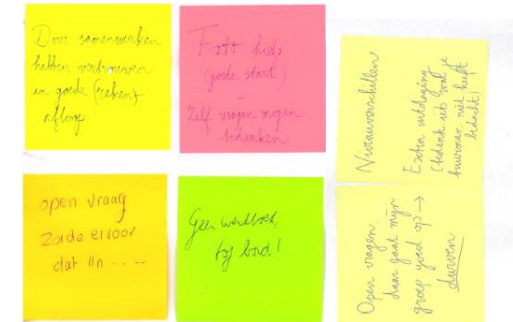 Door samenwerken
hebben vertrouwen
in goede (reken)
afloop
Foto hielp
(goede start!)
Zelf vragen mogen
bedenken
Niveauverschillen
Extra uitdaging
(bedenk iets wat je
buurman niet heeft
bedacht)
open vraag
Zorgde ervoor
dat lln ....
Geen werkboek,
bij bord!
Open vragen,
daar gaat mijn
groep goed op →
durven